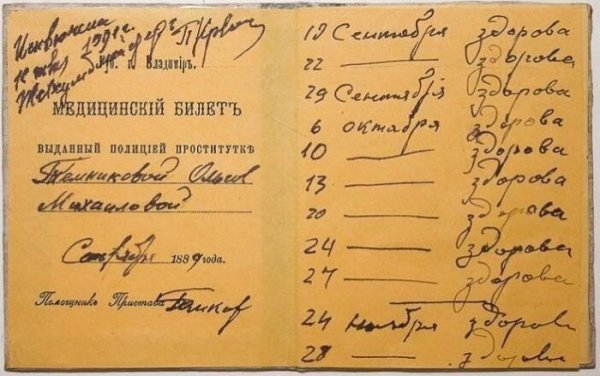 Исключена
1891 г.
г. Владиміръ.
МЕДИЦИНСКІЙ БИЛЕТЪ
ВЫДАННЫЙ ПОЛИЦІЕЙ ПРОСТИТУТКѢ
Темниковой Ольгѣ
Михаиловой
Сентября 1889 года.
Помощникъ Пристава
19 Сентября здорова
22 — здорова
29 Сентября здорова
6 октября здорова
10 — здорова
13 — здорова
20 — здорова
24 — здорова
27 — здорова
24 ноября здорова
28 — здорова